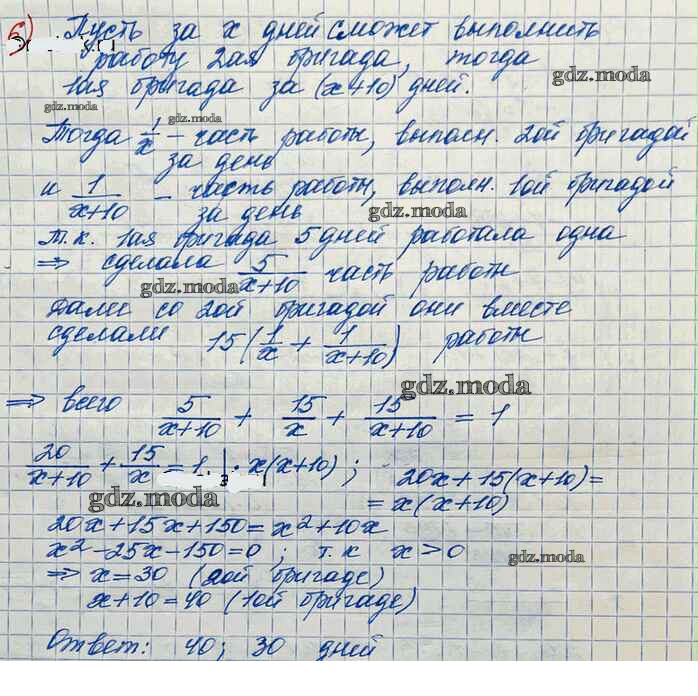 5) Пусть за x дней сможет выполнить
работу 2ая бригада, тогда
gdz.moda
1ая бригада за (x+10) дней.
gdz.moda
gdz.moda
Тогда 1/x – часть работы, выполн. 2ой бригадой
за день
и 1/(x+10) – часть работы, выполн. 1ой бригадой
за день
gdz.moda
Т.к. 1ая бригада 5 дней работала одна
⇒ сделала 5/(x+10) часть работы
gdz.moda
Далее со 2ой бригадой они вместе
сделали 15(1/x + 1/(x+10)) работы
gdz.moda
⇒ всего 5/(x+10) + 15/x + 15/(x+10) = 1
20/(x+10) + 15/x = 1 | · x(x+10) ; 20x+15(x+10)=
= x(x+10)
gdz.moda
20x+15x+150=x²+10x
x²-25x-150=0 ; т.к x>0
gdz.moda
⇒ x=30 (2ой бригаде)
x+10=40 (1ой бригаде)
Ответ: 40; 30 дней
gdz.moda